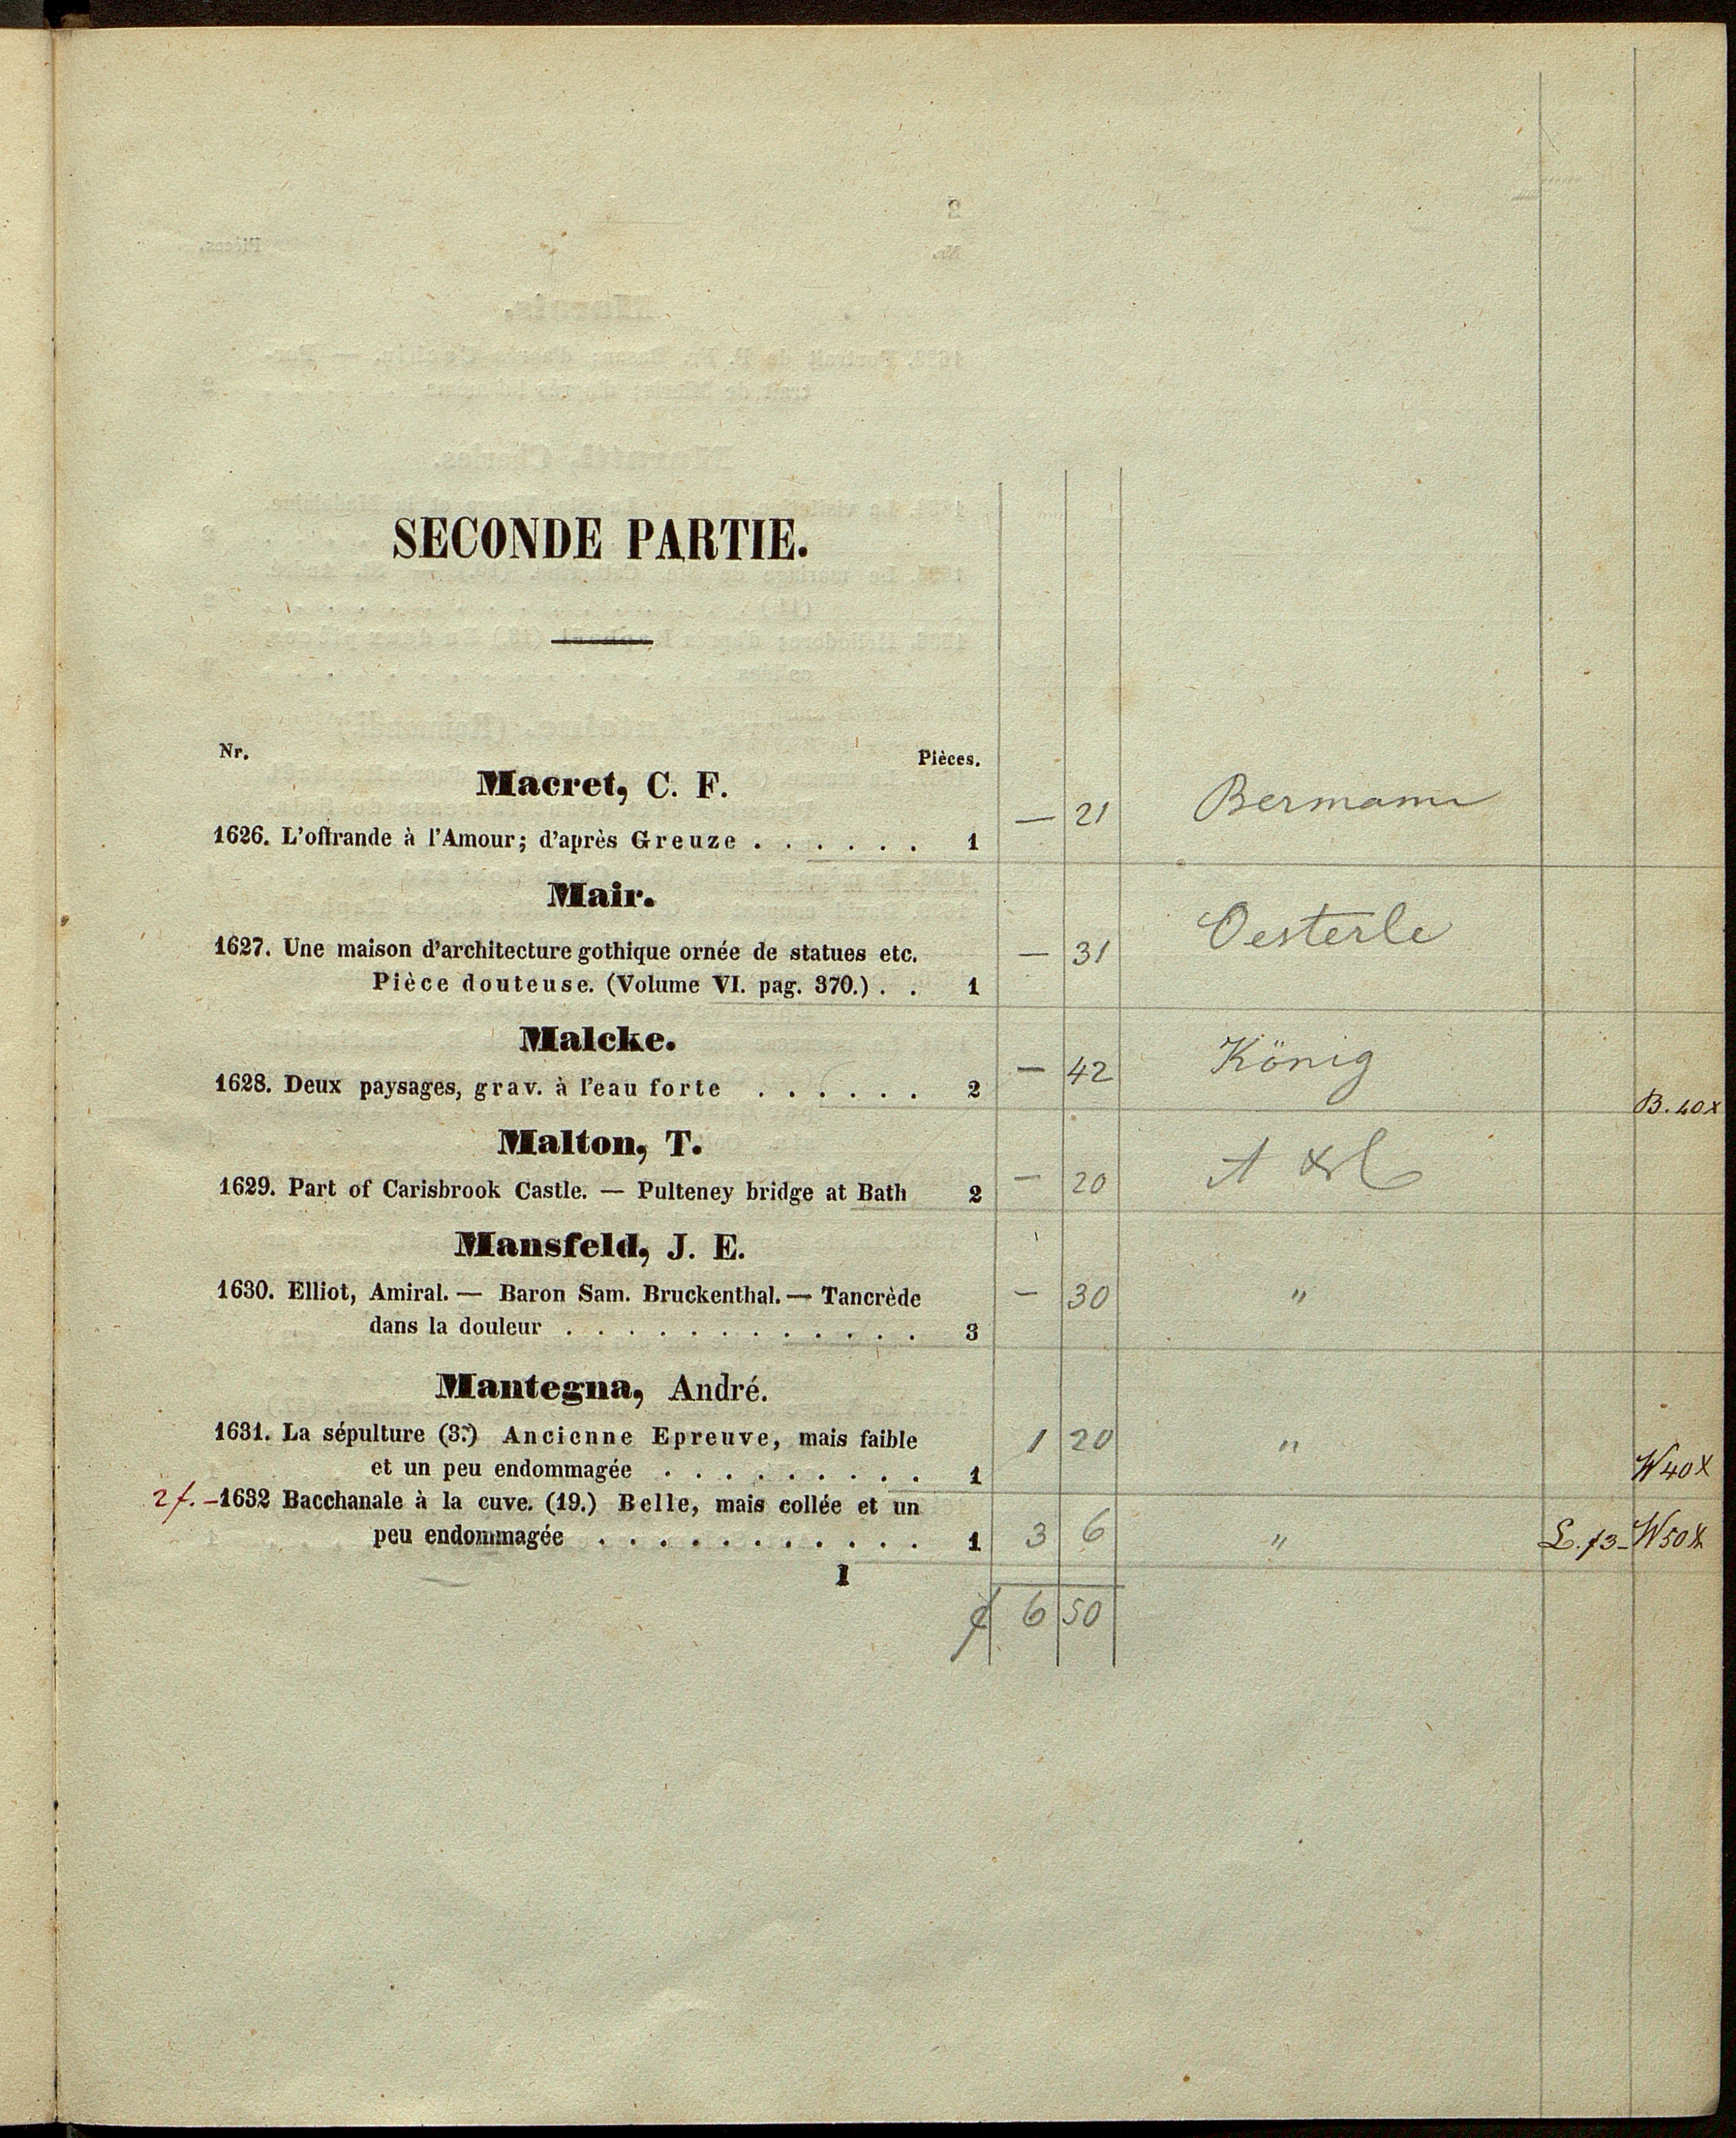 SECONDE PARTIE.
Nr. Pièces.
Macret, C. F.
— 21 Bermann
1626. L'offrande à l'Amour; d'après Greuze . . . . . . 1
Mair.
1627. Une maison d'architecture gothique ornée de statues etc. — 31 Oesterle
Pièce douteuse. (Volume VI. pag. 370.) . . 1
Malcke.
1628. Deux paysages, grav. à l'eau forte . . . . . . 2 — 42 König B. 40x
Malton, T.
1629. Part of Carisbrook Castle. — Pulteney bridge at Bath 2 — 20
Mansfeld, J. E.
1630. Elliot, Amiral. — Baron Sam. Bruckenthal. — Tancrède — 30 "
dans la douleur . . . . . . . . . . . . 3
Mantegna, André.
1631. La sépulture (3.) Ancienne Epreuve, mais faible 1 20 "
et un peu endommagée . . . . . . . . . 1 W40x
2f. – 1632 Bacchanale à la cuve. (19.) Belle, mais collée et un
peu endommagée . . . . . . . . . . . 1 3 6 " L. f3– W50x
I
f 6 50